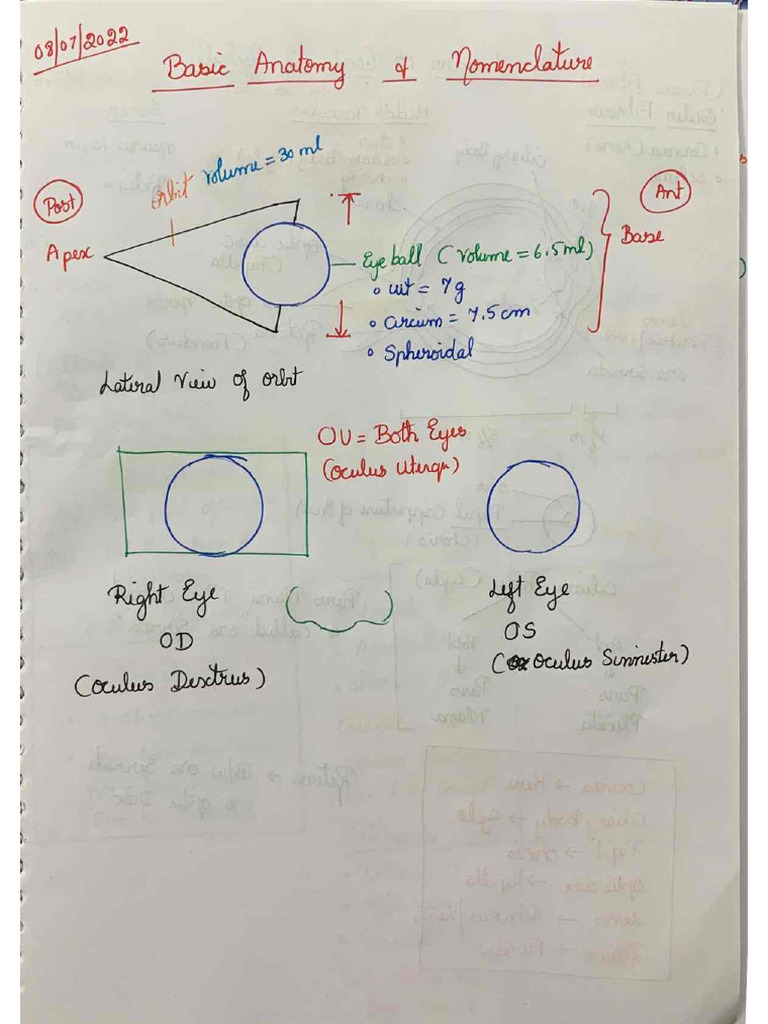 08/07/2022
Basic Anatomy & Nomenclature
Post
orbit volume = 30 ml
Ant
Apex
Base
Eye ball (volume = 6.5ml)
• wt = 7g
• circum = 7.5cm
• Spheroidal
Lateral View of orbit
OU = Both Eyes
(Oculus Uterqu)
Right Eye
OD
(Oculus Dextrus)
Left Eye
OS
(Oculus Sinnister)